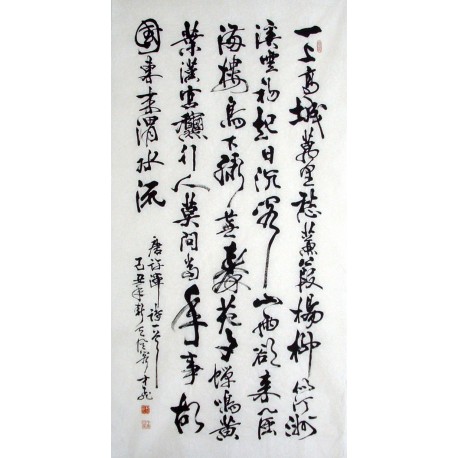 一上高城萬里愁蒹葭楊柳似汀洲
溪雲初起日沉閣山雨欲来風
滿樓鳥下綠蕪秦苑夕蟬鳴黄
葉漢宫龝行人莫問當年事故
國東来渭水流
唐許渾詩一首
己丑年